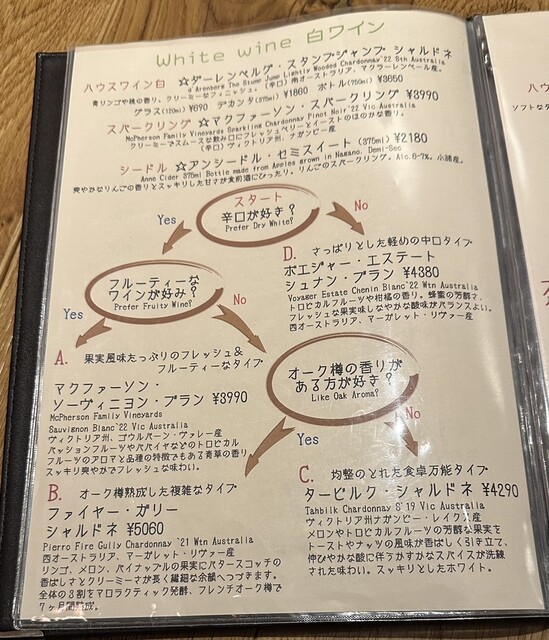 White wine 白ワイン
ハウスワイン白 ☆ダーレンベルグ・スタンプジャンプ シャルドネ
d'Arenberg The Stump Jump Lightly Wooded Chardonnay'22 Sth Australia
青リンゴや桃の香り。クリーミーなフィニッシュ。(辛口)南オーストラリア、マクラーレンベール産。
グラス(110ml)¥690 デカンタ(375ml)¥1860 ボトル(750ml)¥3650
スパークリング ☆マクファーソン・スパークリング ¥3990
McPherson Family Vineyards Sparkling Chardonnay Pinot Noir'22 Vic Australia
クリーミーでスムースな飲み口にフレッシュベリーとイーストのほのかな香り。
(辛口)ヴィクトリア州、ナガンビー産
シードル ☆アンシードル・セミスイート (375ml) ¥2180
Anne Cider 375ml Bottle made from Apples grown in Nagano. Demi-Sec
爽やかなりんごの香りとスッキリした甘さが食前酒にぴったり。りんごのスパークリング。Alc.6-7%。小諸産。
スタート
辛口が好き?
Prefer Dry White?
Yes
No
フルーティーな
ワインが好み?
Prefer Fruity Wine?
Yes
No
D. さっぱりとした軽めの中口タイプ
ボエジャー・エステート
シュナン・ブラン ¥4380
Voyager Estate Chenin Blanc'22 Wtn Australia
トロピカルフルーツや柑橘の香り。蜂蜜の芳醇さ、
フレッシュな果実味しなやかな酸味がバランスよい。
西オーストラリア、マーガレット・リヴァー産
A. 果実風味たっぷりのフレッシュ&
フルーティーなタイプ
マクファーソン・
ソーヴィニヨン・ブラン ¥3990
McPherson Family Vineyards
Sauvignon Blanc'22 Vic Australia
ヴィクトリア州、ゴウルバーン・ヴァレー産
パッションフルーツやパパイヤなどのトロピカル
フルーツのアロマと品種の特徴でもある青草の香り。
スッキリ爽やかでフレッシュな味わい。
オーク樽の香りが
ある方が好き?
Like Oak Aroma?
Yes
No
B. オーク樽熟成した複雑なタイプ
ファイヤー・ガリー
シャルドネ ¥5060
Pierro Fire Gully Chardonnay '21 Wtn Australia
西オーストラリア、マーガレット・リヴァー産
リンゴ、メロン、パイナップルの果実にバタースコッチの
香ばしさとクリーミーさが長く繊細な余韻へつづきます。
全体の3割をマロラクティック発酵、フレンチオーク樽で
7ヶ月間熟成。
C. 均整のとれた食卓万能タイプ
タービルク・シャルドネ ¥4290
Tahbilk Chardonnay S'19 Vic Australia
ヴィクトリア州ナガンビー・レイクス産
メロンやトロピカルフルーツの芳醇な果実を
トーストやナッツの風味が香ばしく引き立て、
伸びやかな酸に伴うかすかなスパイスが洗練
された味わい。スッキリとしたホワイト。